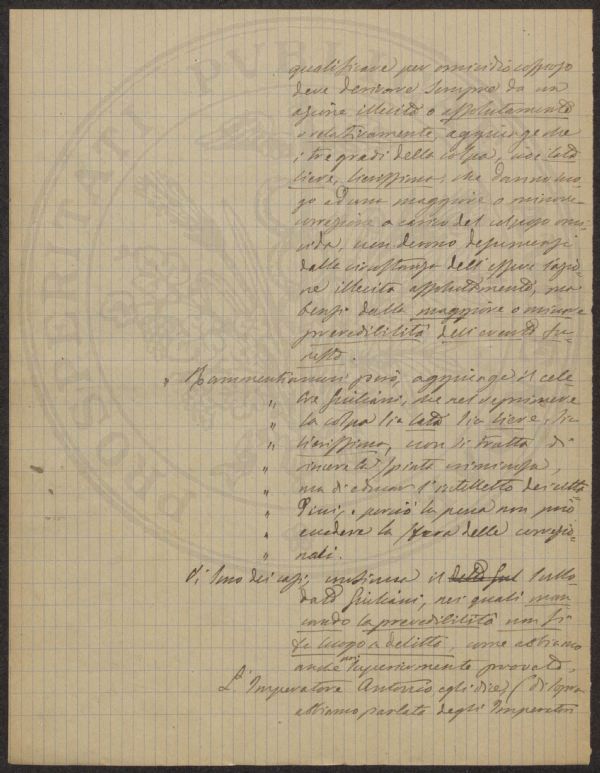 qualificare per omicidio colposo
deve derivare sempre da un
azione illecita o assolutamente
o relativamente, aggiunge che
i tre gradi della colpa, cioè lata
lieve, lievissima, che danno luo-
go ad una maggiore o minore
correzione a carico del colposo omi-
cida, non denno desumersi
dalle circostanze dell'essere l'azio-
ne illecita assolutamente, ma
bensì dalla maggiore o minore
prevedibilità dell'evento fu-
nesto.
" Rammentiamoci però, aggiunge il cele-
" bre Giuliani, che nel reprimere
" la colpa sia lata sia lieve, sia
" lievissima, non si tratta di
" spinta criminosa,
" ma di educar l'intelletto dei citta-
" dini, e perciò la pena non può
" eccedere la sfera delle correzio-
" nali.
Vi sono dei casi, continua il sullo-
dato Giuliani, nei quali man-
cando la prevedibilità non si
fa luogo a delitto, come abbiamo
anche noi superiormente provato.
L'Imperatore Antonio egli dice) (di sopra
abbiamo parlato degli Imperatori